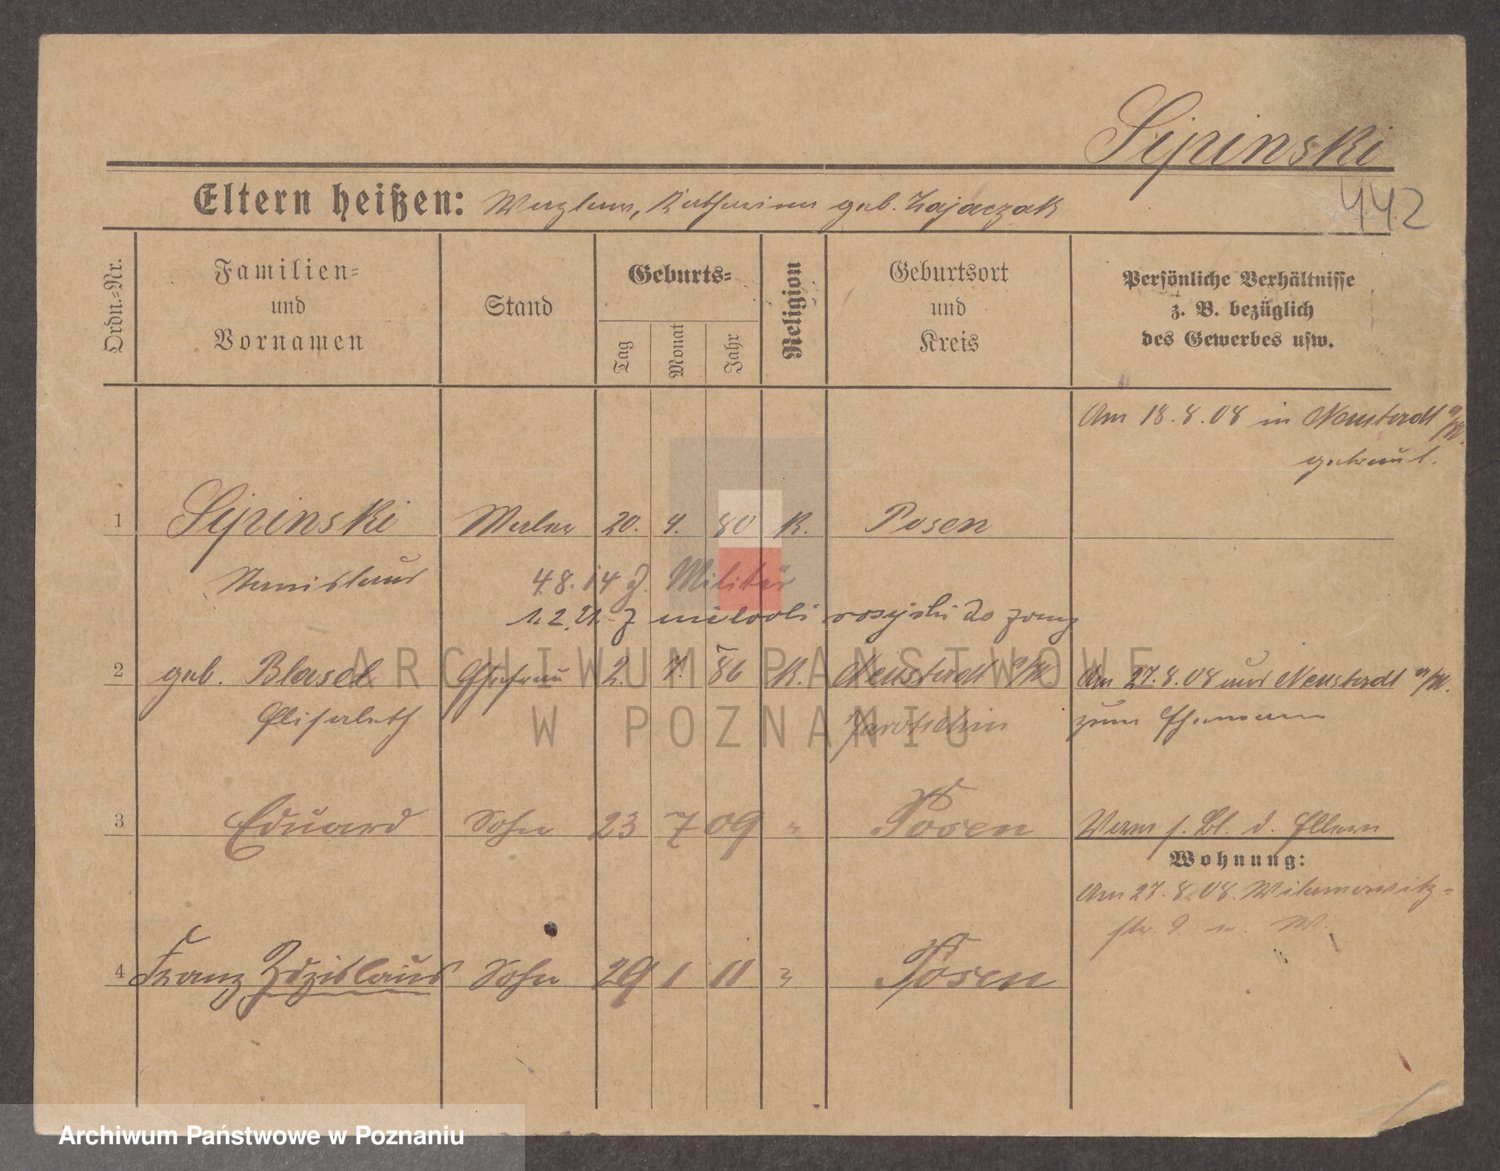 Sipinski
442
Eltern heißen: Wazlaw, Katharina geb. Zajaczak
Ordn.=Nr.
Familien=
und
Vornamen
Stand
Geburts=
Tag
Monat
Jahr
Religion
Geburtsort
und
Kreis
Persönliche Verhältnisse
z. B. bezüglich
des Gewerbes usw.
Am 18.8.08 in Neustadt a/W.
getraut.
1 Sipinski Maler 20. 4. 80 K. Posen
Stanislaus 4.8.14 z. Militär
1.2.21. z do
2 geb. Blasel Ehefrau 2. 7. 86 K. Neustadt a/W Am 27.8.08 aus Neustadt a/W.
Elisabeth Jarotschin zum Ehemann
3 Eduard Sohn 23 7 09 " Posen d. Eltern
Wohnung:
Am 27.8.08. Wilamowitz-
str.
4 Franz Zdzislaus Sohn 29 1 11 " Posen
ARCHIWUM PAŃSTWOWE
W POZNANIU
Archiwum Państwowe w Poznaniu